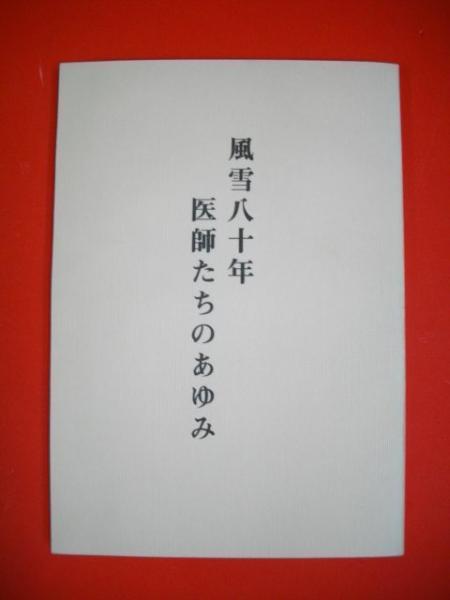 風雪八十年
医師たちのあゆみ